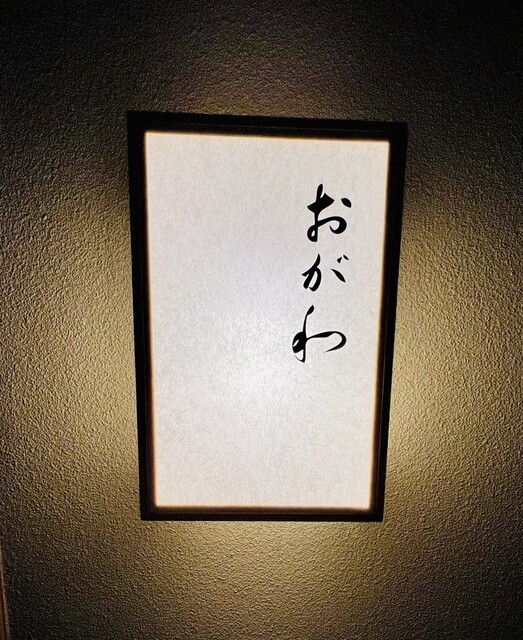 おがわ